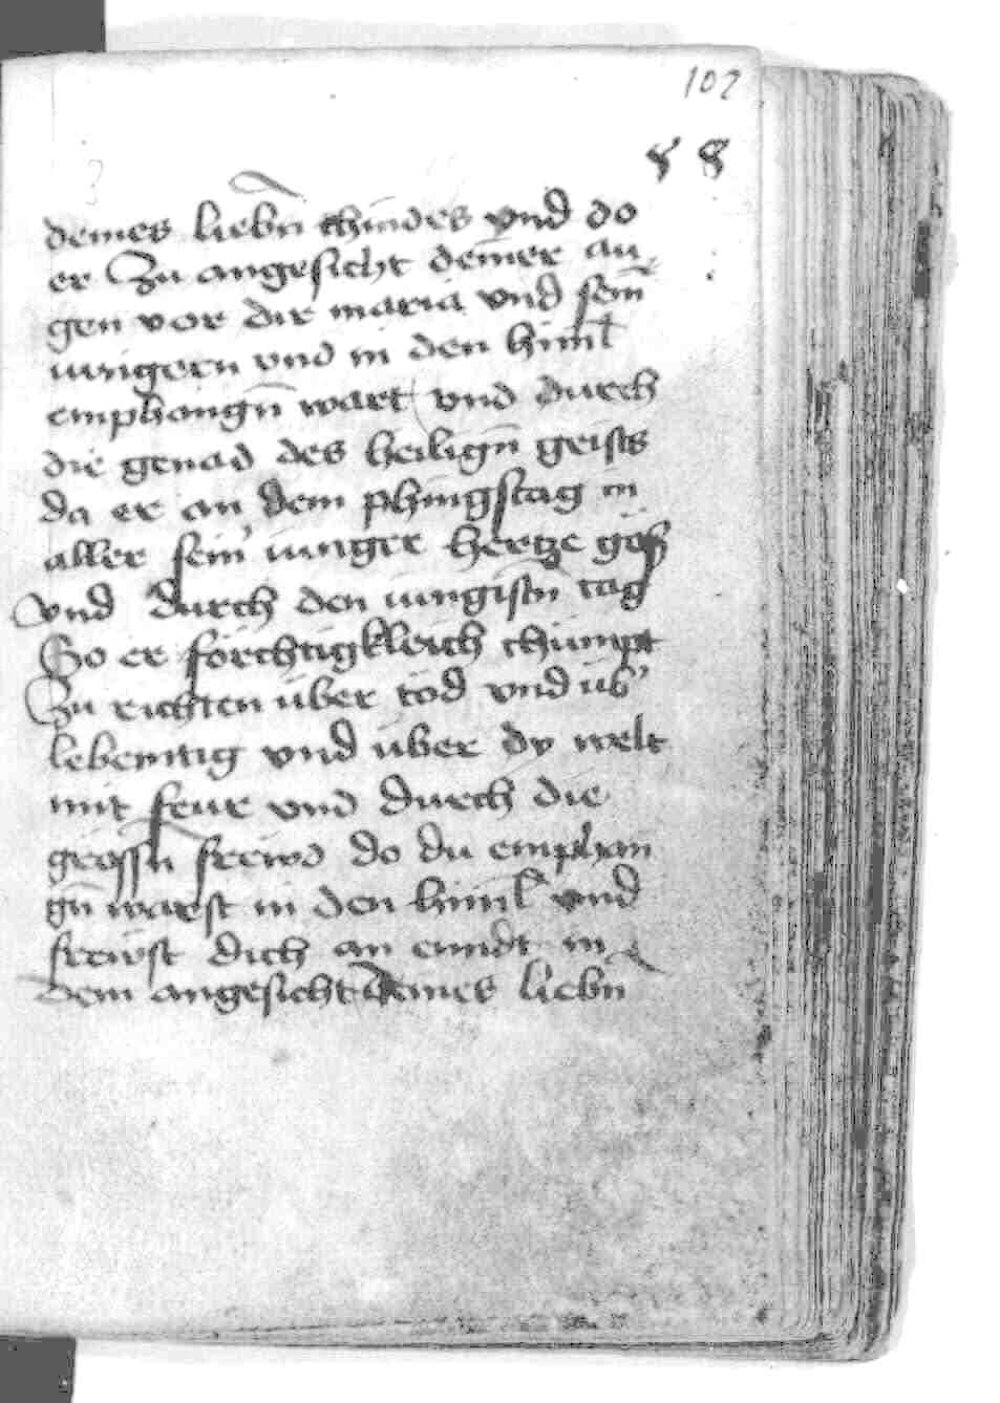 102
88
deines liebn̄ chindes vnd do
er Zu angesicht deiner au
gen vor dir maria vnd sein̄
iungern vnd in den himl̄
emphangn̄ wart vnd durch
die genad des heilign̄ geists
da er an dem phingstag in
aller sein' iunger hertze gös
vnd durch den iungistn̄ tag
So er förchtigkleich chumpt
Zu richten über töd vnd üb'
lebentig vnd über dy welt
mit feur vnd durch die
grossn̄ frewd do du emphan
gn̄ warst in den himl̄ vnd
frewst dich an ennde in
dem angesicht deines liebn̄